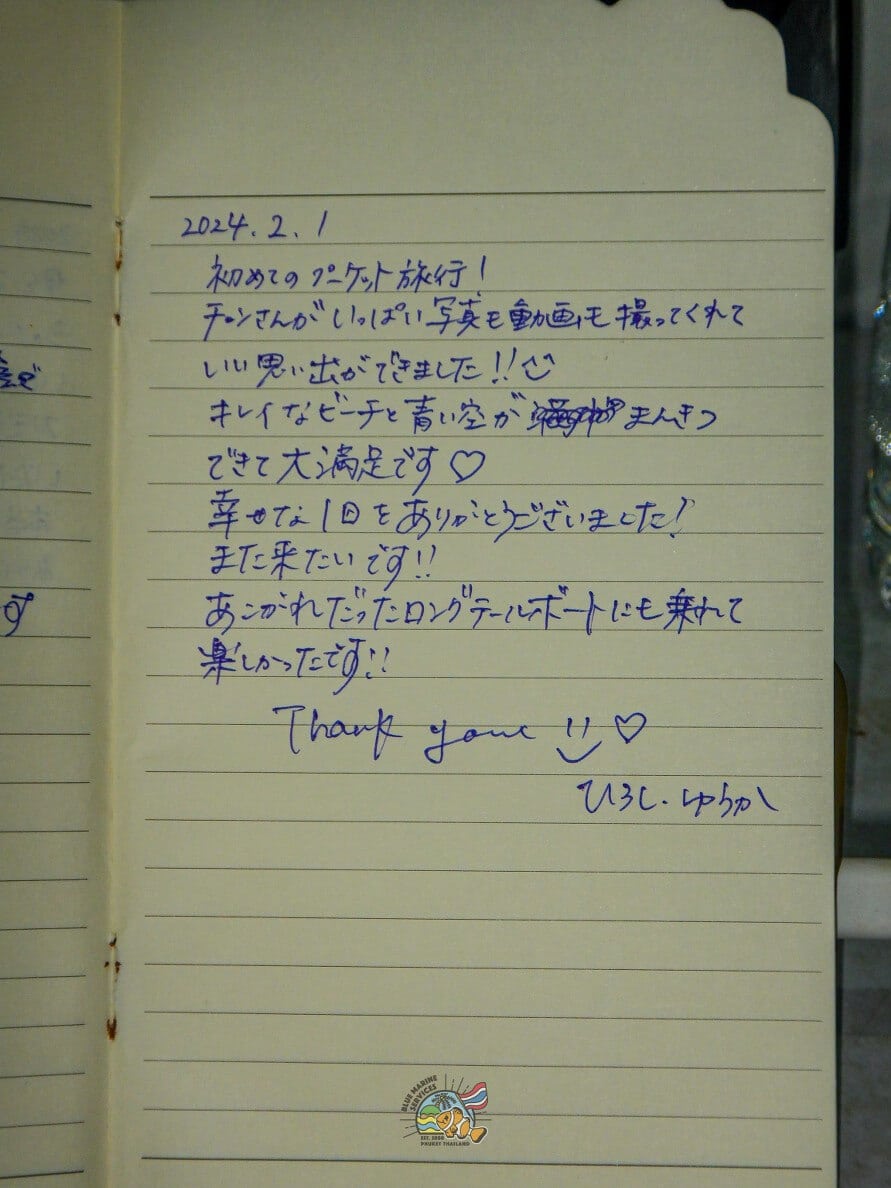 2024.2.1
初めてのプーケット旅行!
チャンさんがいっぱい写真も動画も撮ってくれて
いい思い出ができました!!
キレイなビーチと青い空が まんきつ
できて大満足です♡
幸せな1日をありがとうございました!
また来たいです!!
あこがれだったロングテールボートにも乗れて
楽しかったです!!
Thank you !! ♡
ひろし・ゆうか
す
BLUE MARINE SERVICES
EST. 1998
PHUKET THAILAND